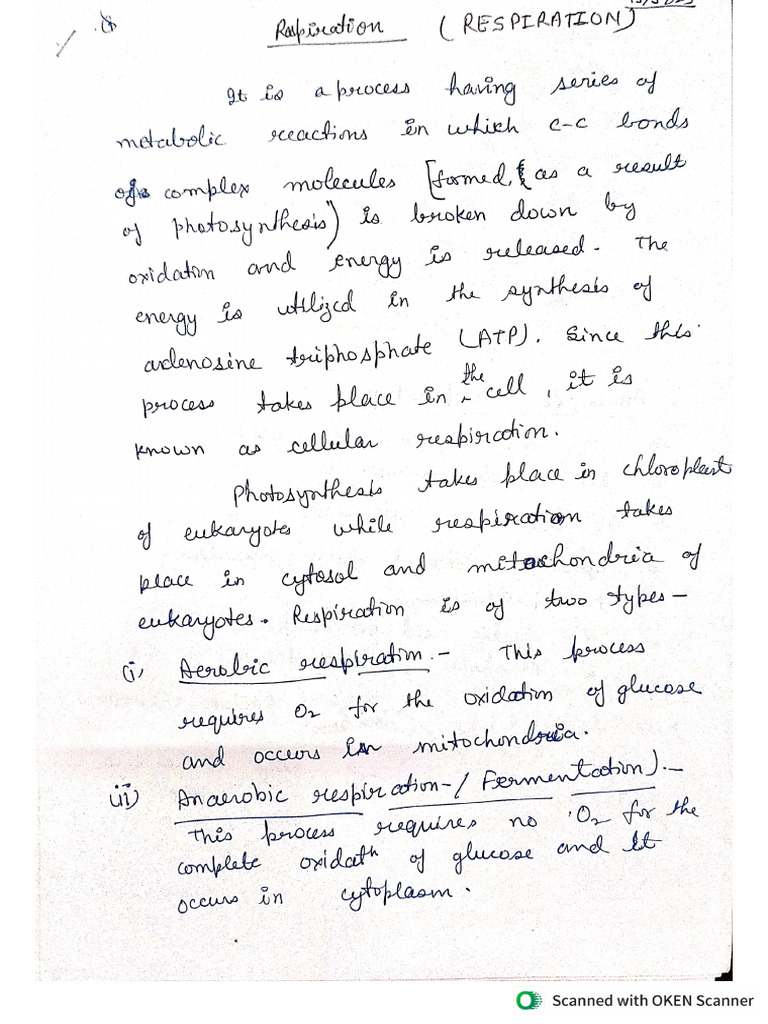 Respiration (RESPIRATION)
It is a process having series of
metabolic reactions in which c-c bonds
of complex molecules [formed, (as a result
of photosynthesis") is broken down by
oxidation and energy is released. The
energy is utilized in the synthesis of
adenosine triphosphate (ATP). Since this
process takes place in the cell, it is
known as cellular respiration.
Photosynthesis takes place in chloroplast
of eukaryotes while respiration takes
place in cytosol and mitochondria of
eukaryotes. Respiration is of two types-
(i) Aerobic respiration.- This process
requires O2 for the oxidation of glucose
and occurs in mitochondria.
(ii) Anaerobic respiration-/Fermentation).-
This process requires no O2 for the
complete oxidatn of glucose and it
occurs in cytoplasm.
Scanned with OKEN Scanner